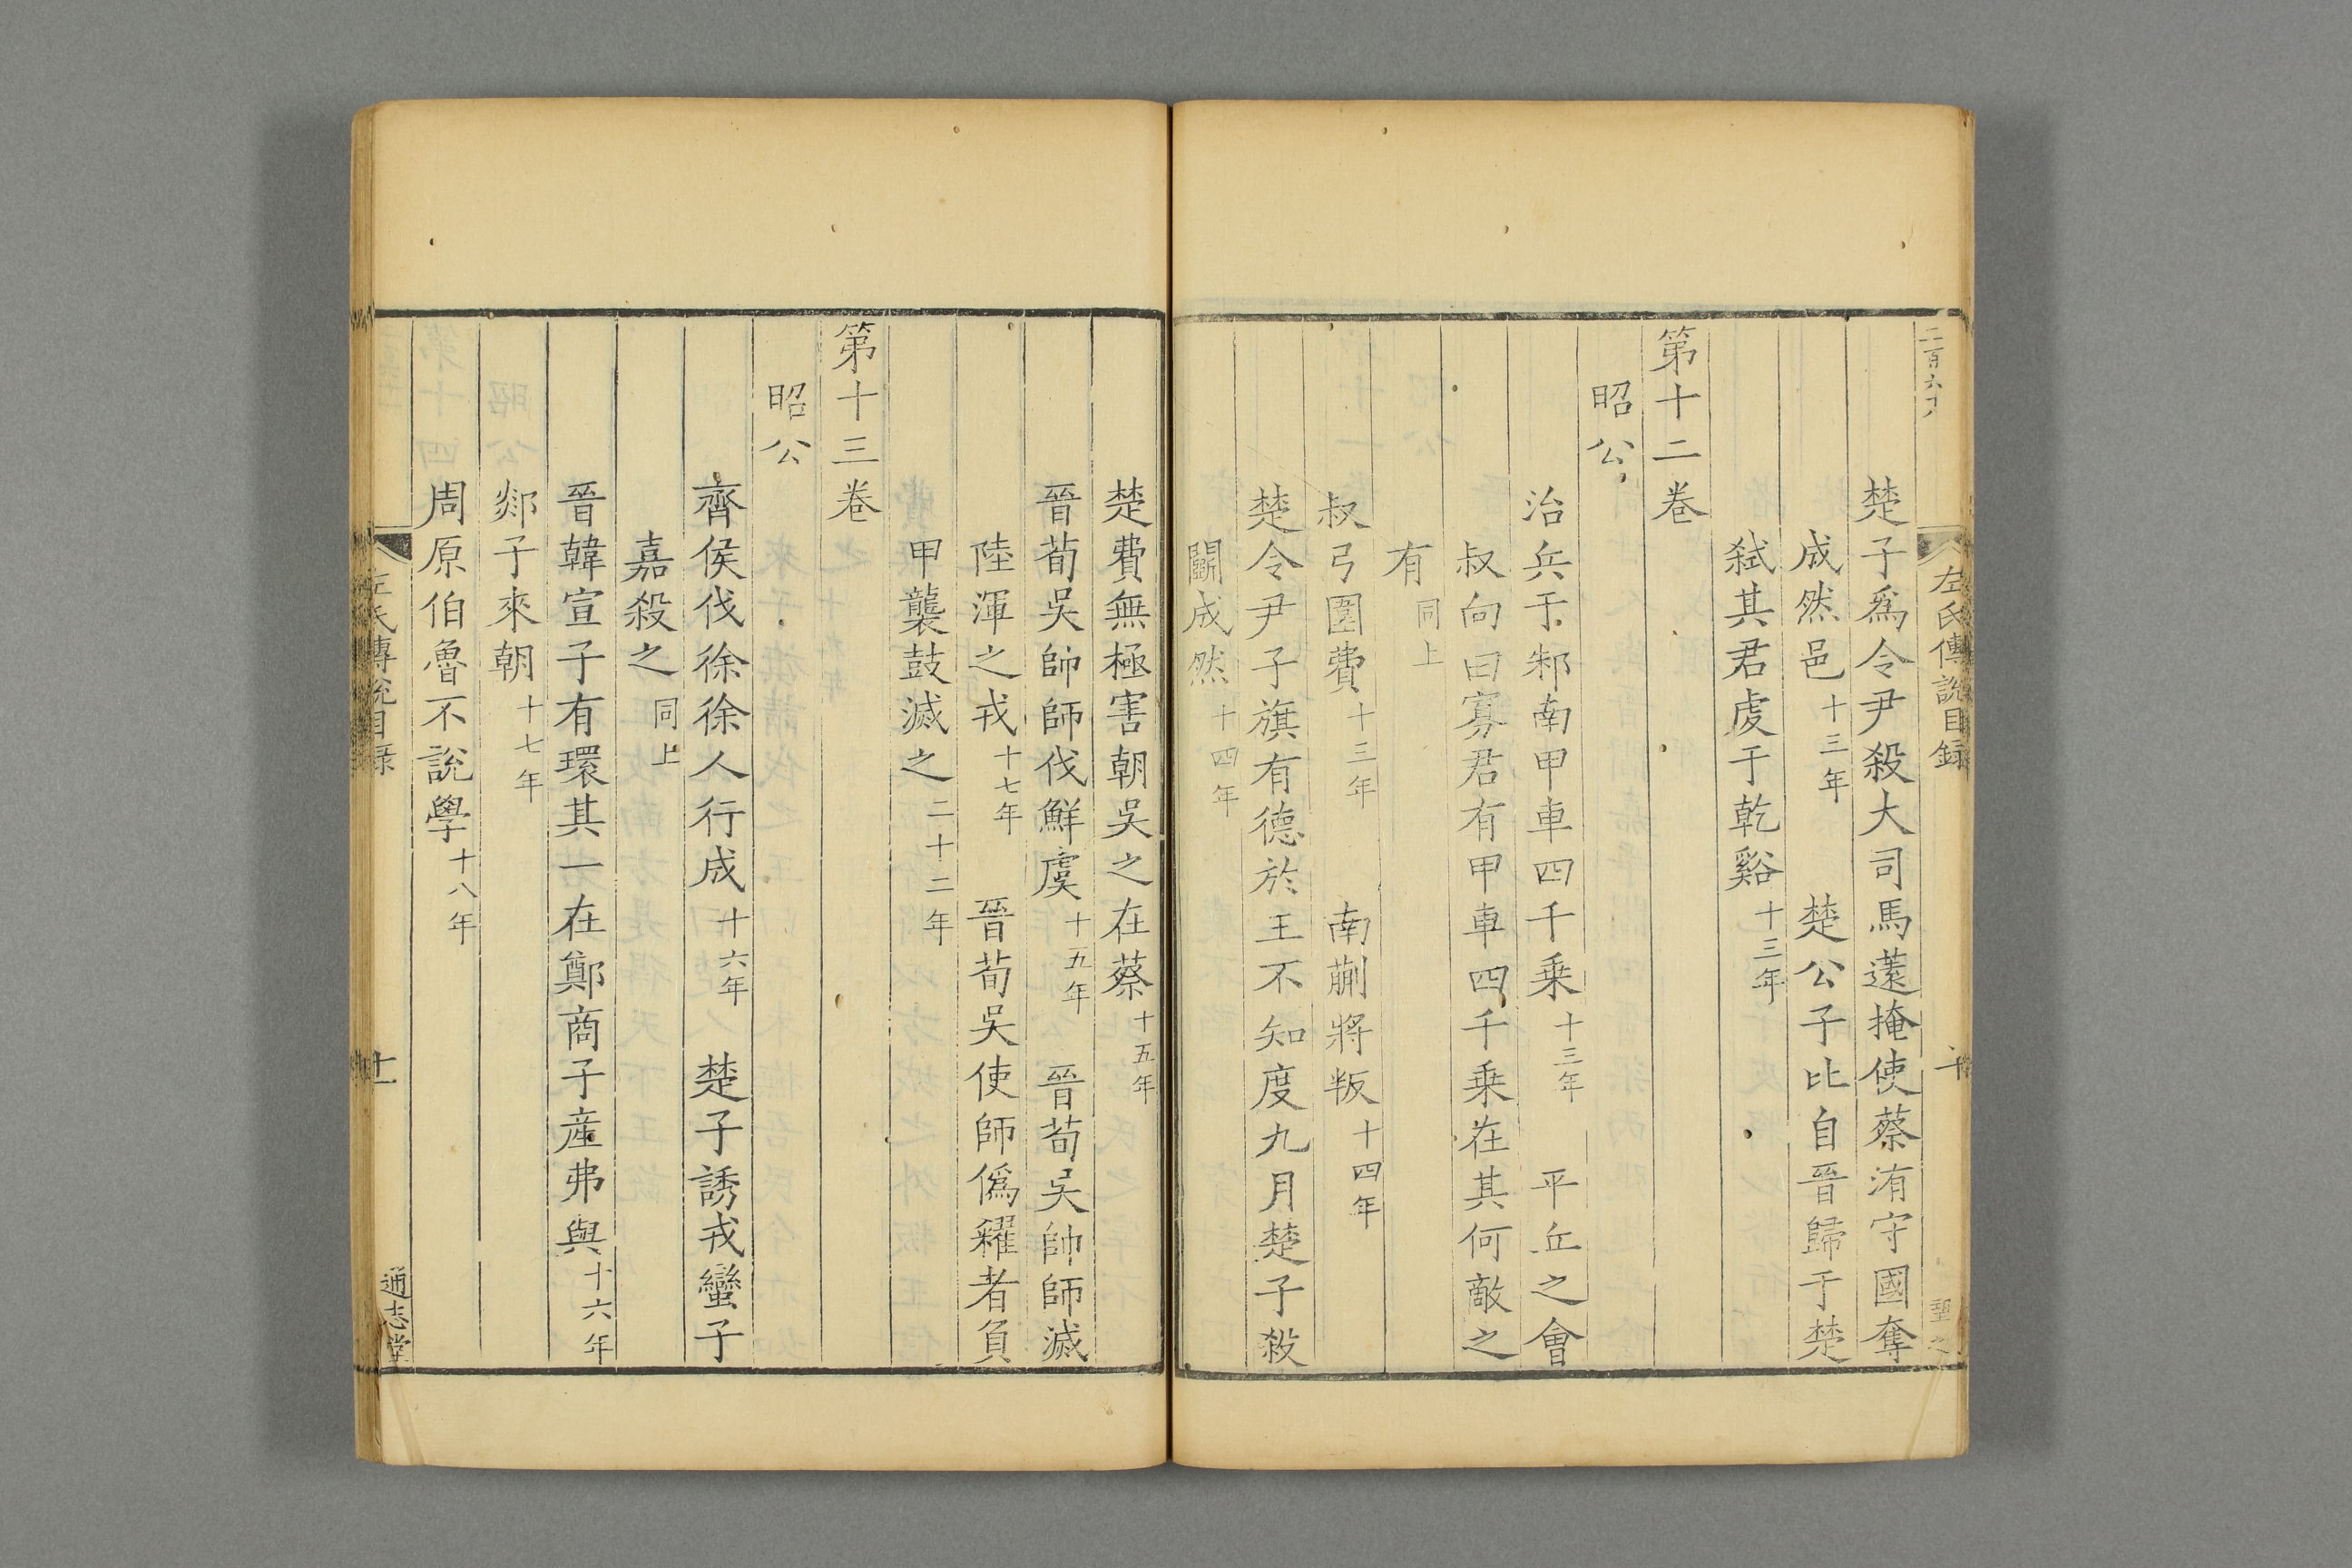 二百六十八
左氏傳說目錄
十
楚子爲令尹殺大司馬薳掩使蔡洧守國奪
成然邑十三年　楚公子比自晉歸于楚
弑其君虔于乾谿十三年
第十二卷
昭公
治兵于邾南甲車四千乗十三年　平丘之會
叔向曰寡君有甲車四千乗在其何敵之
有同上
叔弓圍費十三年　南蒯將叛十四年
楚令尹子旗有德於王不知度九月楚子殺
鬭成然十四年
楚費無極害朝吳之在蔡十五年
晉荀吳帥師伐鮮虞十五年　晉荀吳帥師滅
陸渾之戎十七年　晉荀吳使師僞糴者負
甲襲鼓滅之二十二年
第十三卷
昭公
齊侯伐徐徐人行成十六年　楚子誘戎蠻子
嘉殺之同上
晉韓宣子有環其一在鄭商子産弗與十六年
郯子來朝十七年
周原伯魯不說學十八年
左氏傳說目錄
十一
通志堂